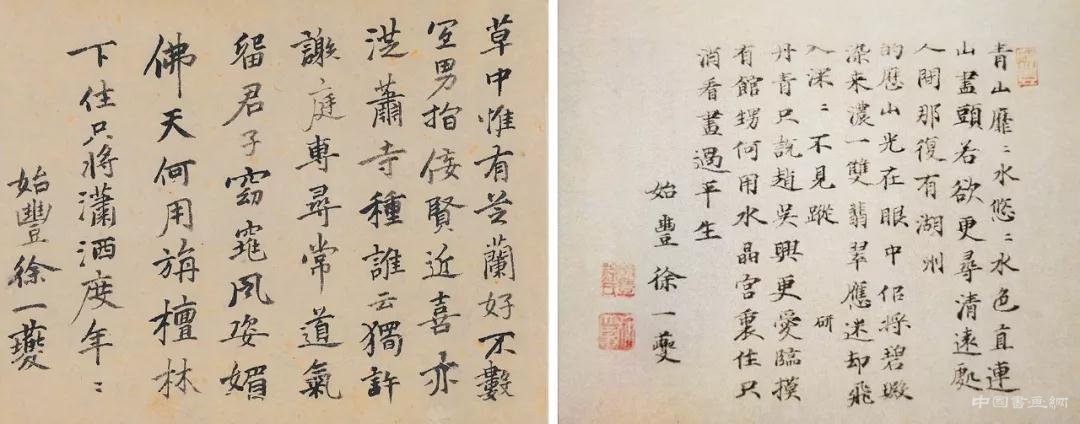 草中惟有芝蘭好不數
宜男指佞賢近喜亦
從蕭寺種誰云獨許
謝庭專尋常道氣
留君子窈窕風姿媚
佛天何用旃檀林
下住只將瀟洒度年〻
始豐徐一夔
青山靡〻水悠〻水色直連
山盡頭若欲更尋清遠處
人間那復有湖州
的厯山光在眼中佀將碧
染來濃一雙翡翠應迷却飛
入深〻不見蹤 研
丹青只說趙吳興更愛臨摸
有館甥何用水晶宮裏住只
消看畫過平生
始豐徐一夔
中國書畫網